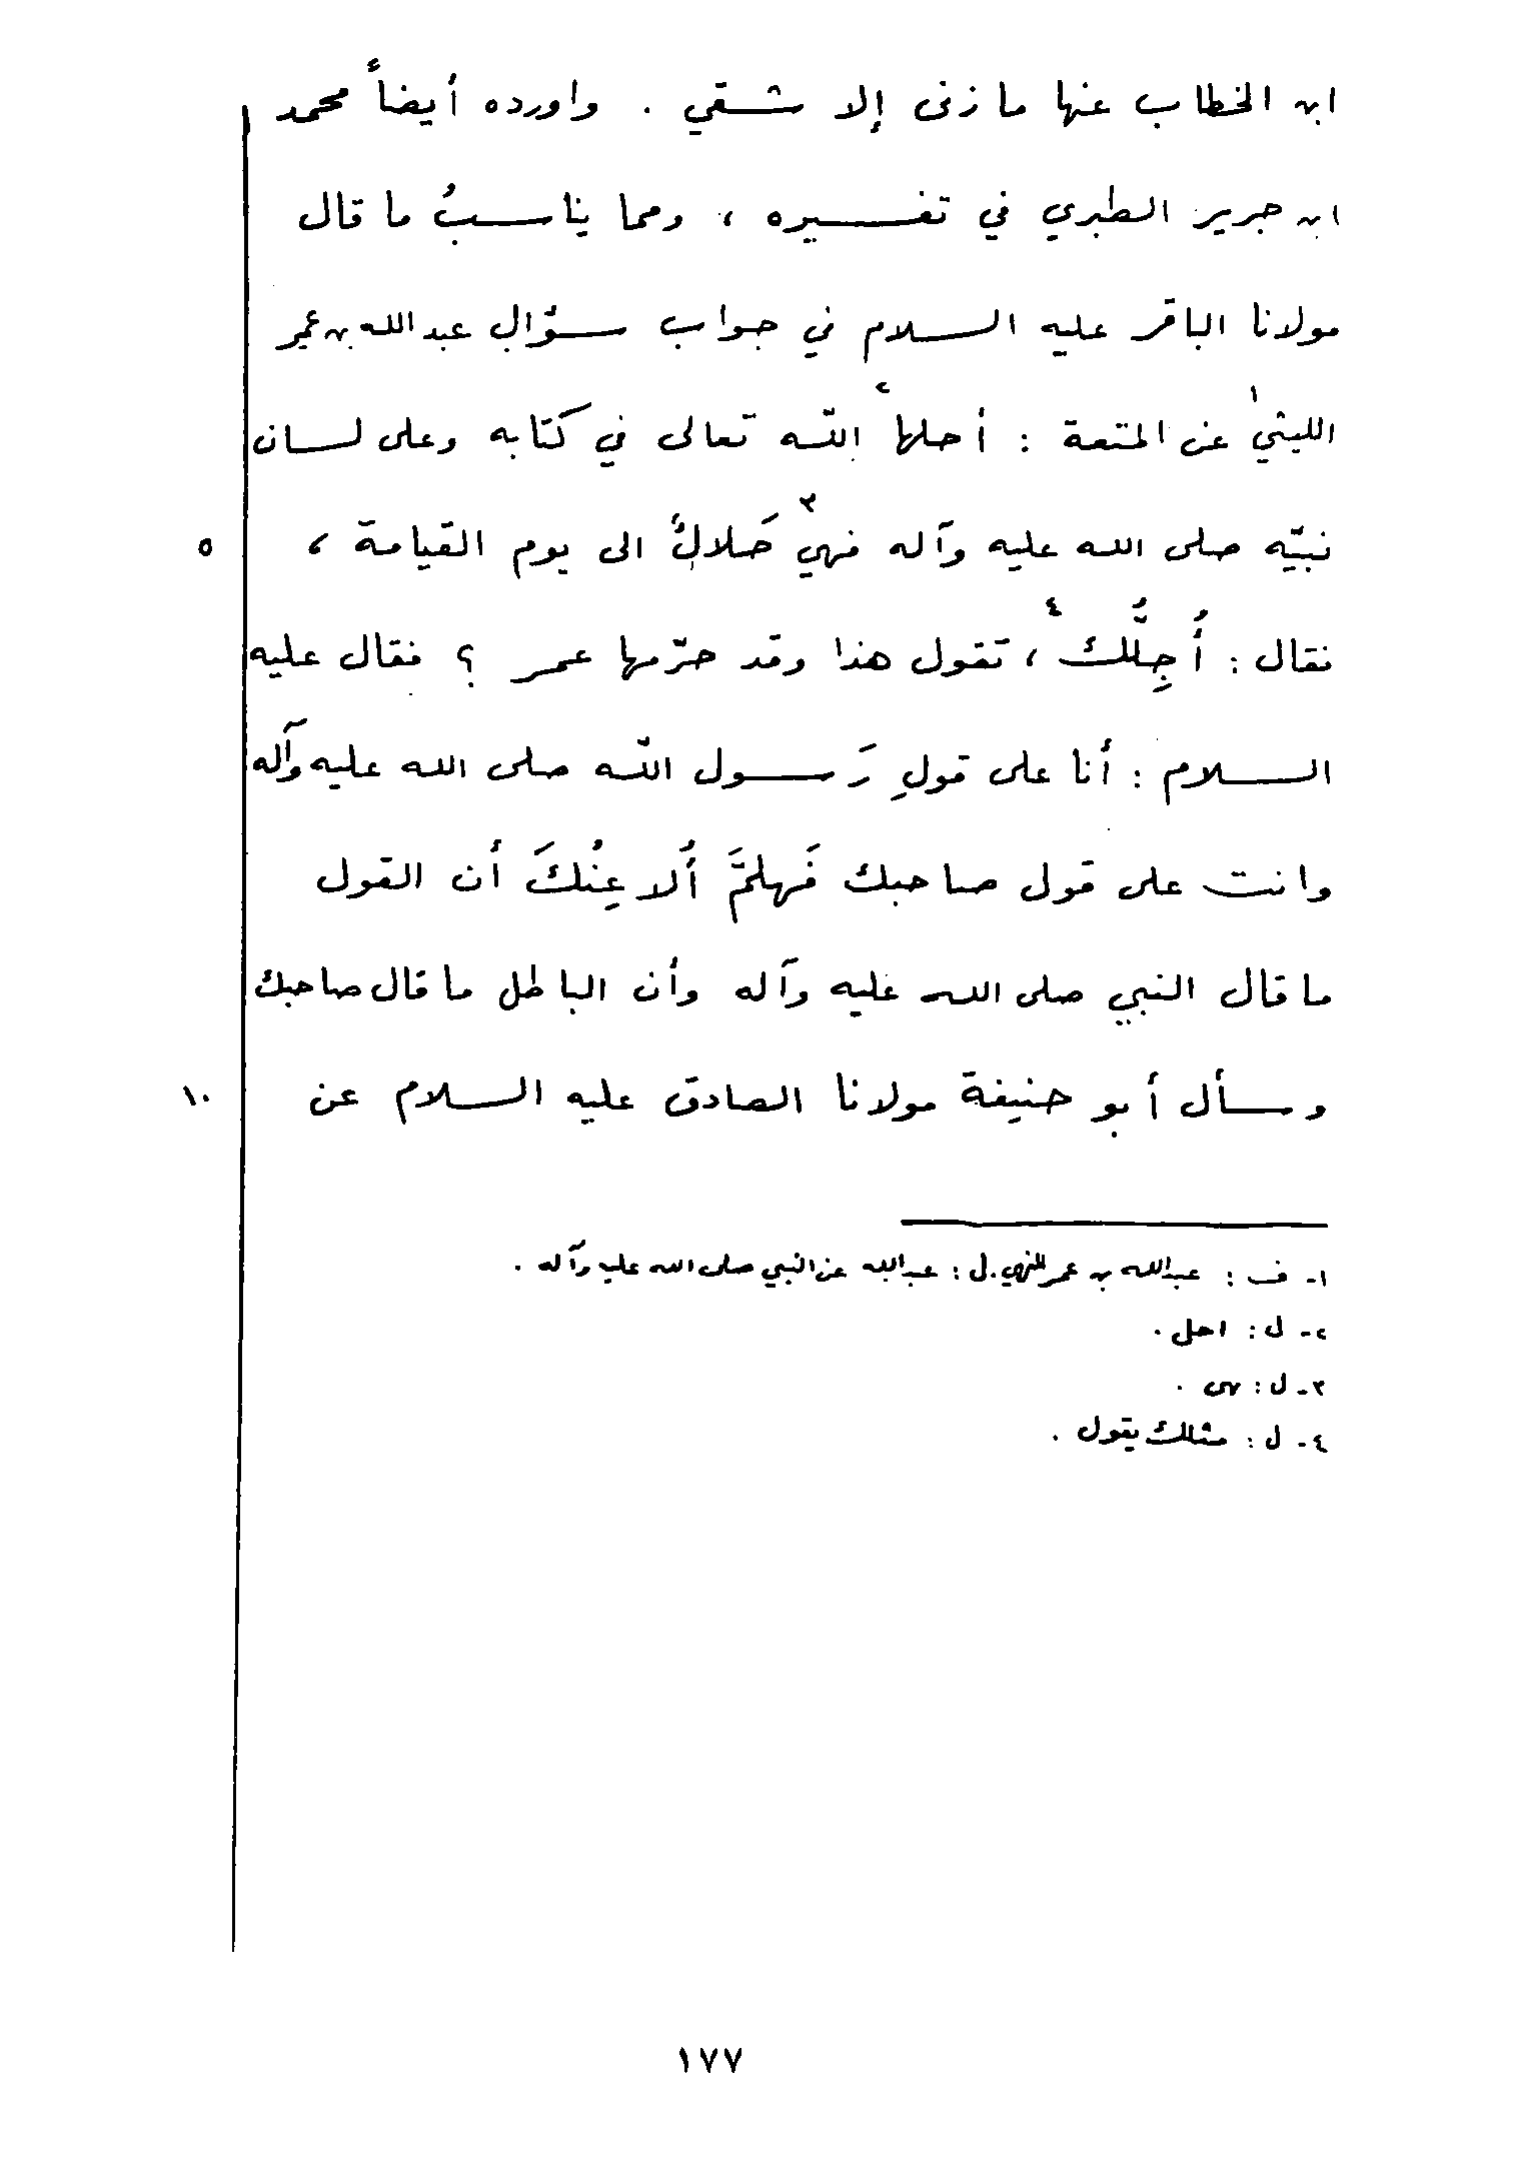 ابن الخطاب عنها ما زنى إلا شقي . واورده أيضاً محمد
ابن جرير الطبري في تفسيره ، ومما يناسبُ ما قال
مولانا الباقر عليه السلام في جواب سؤال عبد الله بن عمير
الليثي١ عن المتعة : أحلها٢ اللّه تعالى في كتابه وعلى لسان
نبيّه صلى الله عليه وآله فهي٣ حَلالٌ الى يوم القيامة ، ٥
فقال : أُجِلُّك٤ ، تقول هذا وقد حرّمها عمر ؟ فقال عليه
السلام : أنا على قولِ رَسول اللّه صلى الله عليه وآله
وانت على قول صاحبك فَهلمَّ أُلاعِنْكَ أن القول
ما قال النبي صلى الله عليه وآله وأن الباطل ما قال صاحبك
وسأل أبو حنيفة مولانا الصادق عليه السلام عن ١٠
١- ف : عبدالله بن عمر . ل : عبدالله عن النبي صلى الله عليه وآله .
٢- ل : احل .
٣- ل : هى .
٤- ل : مثلك يقول .
١٧٧